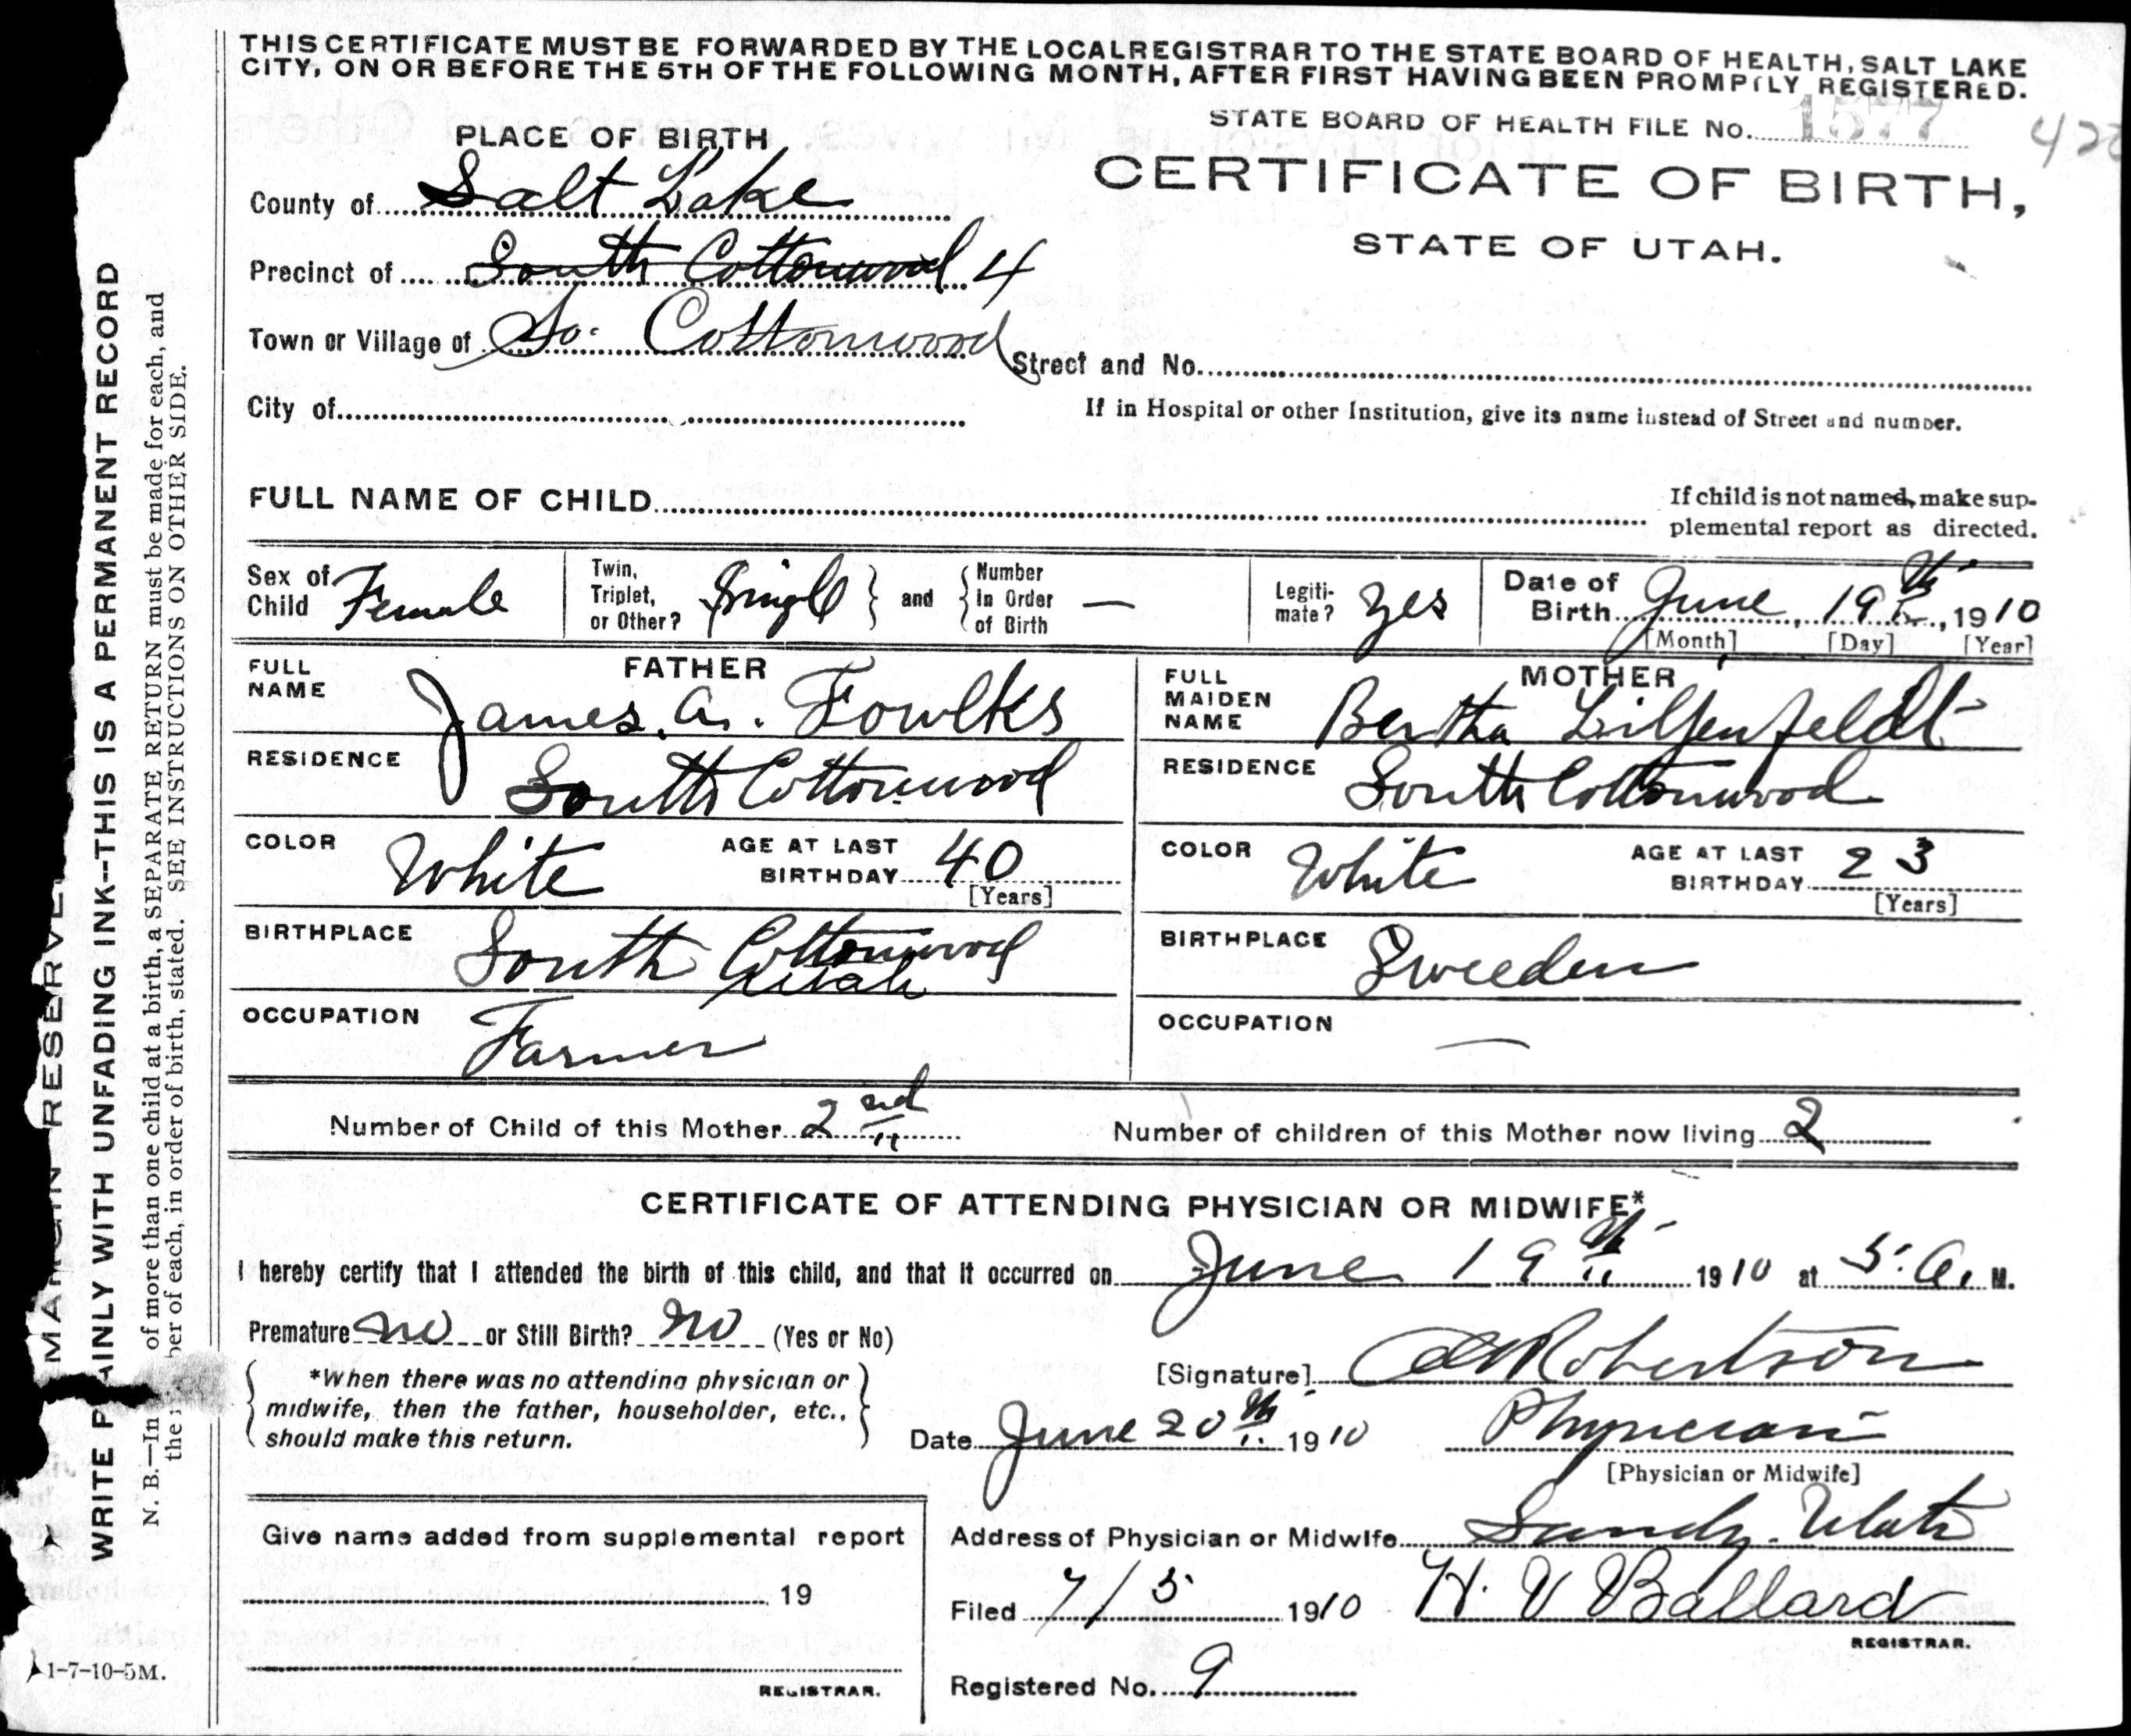 THIS CERTIFICATE MUST BE FORWARDED BY THE LOCAL REGISTRAR TO THE STATE BOARD OF HEALTH, SALT LAKE
CITY, ON OR BEFORE THE 5TH OF THE FOLLOWING MONTH, AFTER FIRST HAVING BEEN PROMPTLY REGISTERED.
STATE BOARD OF HEALTH FILE No. 1577
PLACE OF BIRTH
CERTIFICATE OF BIRTH,
STATE OF UTAH.
County of Salt Lake
Precinct of South Cottonwood 4
Town or Village of So. Cottonwood
Street and No.
City of
If in Hospital or other Institution, give its name instead of Street and number.
FULL NAME OF CHILD
If child is not named, make sup-
plemental report as directed.
Sex of Child Female
Twin, Triplet, or Other? Single } and { Number In Order of Birth —
Legiti-mate? Yes
Date of Birth June, 19th, 1910
[Month] [Day] [Year]
FATHER
FULL NAME James. A. Fowlks
RESIDENCE South Cottonwood
COLOR White AGE AT LAST BIRTHDAY 40
[Years]
BIRTHPLACE South Cottonwood
Utah
OCCUPATION Farmer
MOTHER
FULL MAIDEN NAME Bertha Liljenfeldt
RESIDENCE South Cottonwood
COLOR White AGE AT LAST BIRTHDAY 23
[Years]
BIRTHPLACE Sweeden
OCCUPATION —
Number of Child of this Mother 2nd Number of children of this Mother now living 2
CERTIFICATE OF ATTENDING PHYSICIAN OR MIDWIFE*
I hereby certify that I attended the birth of this child, and that it occurred on June 19th 1910 at 5. A. M.
Premature no or Still Birth? No (Yes or No)
*When there was no attending physician or
midwife, then the father, householder, etc.,
should make this return.
[Signature] Robertson
Date June 20th 1910 Physician
[Physician or Midwife]
Address of Physician or Midwife Sandy. Utah
Filed 7/5 1910 H. V Ballard
REGISTRAR.
Registered No. 9
Give name added from supplemental report
19
REGISTRAR.
1-7-10-5M.
MARGIN RESERVE
WRITE PLAINLY WITH UNFADING INK--THIS IS A PERMANENT RECORD
N. B.—In of more than one child at a birth, a SEPARATE RETURN must be made for each, and
the ber of each, in order of birth, stated. SEE INSTRUCTIONS ON OTHER SIDE.